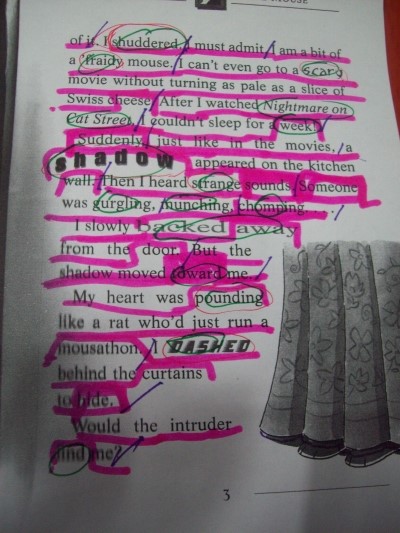 MOUSE
of it. I shuddered. I must admit, I am a bit of
a fraidy mouse. I can't even go to a scary
movie without turning as pale as a slice of
Swiss cheese. After I watched Nightmare on
Cat Street, I couldn't sleep for a week!
Suddenly, just like in the movies, a
shadow appeared on the kitchen
wall. Then I heard strange sounds. Someone
was gurgling, munching, chomping. . . .
I slowly backed away
from the door. But the
shadow moved toward me.
My heart was pounding
like a rat who'd just run a
mousathon. I DASHED
behind the curtains
to hide.
Would the intruder
find me?
3